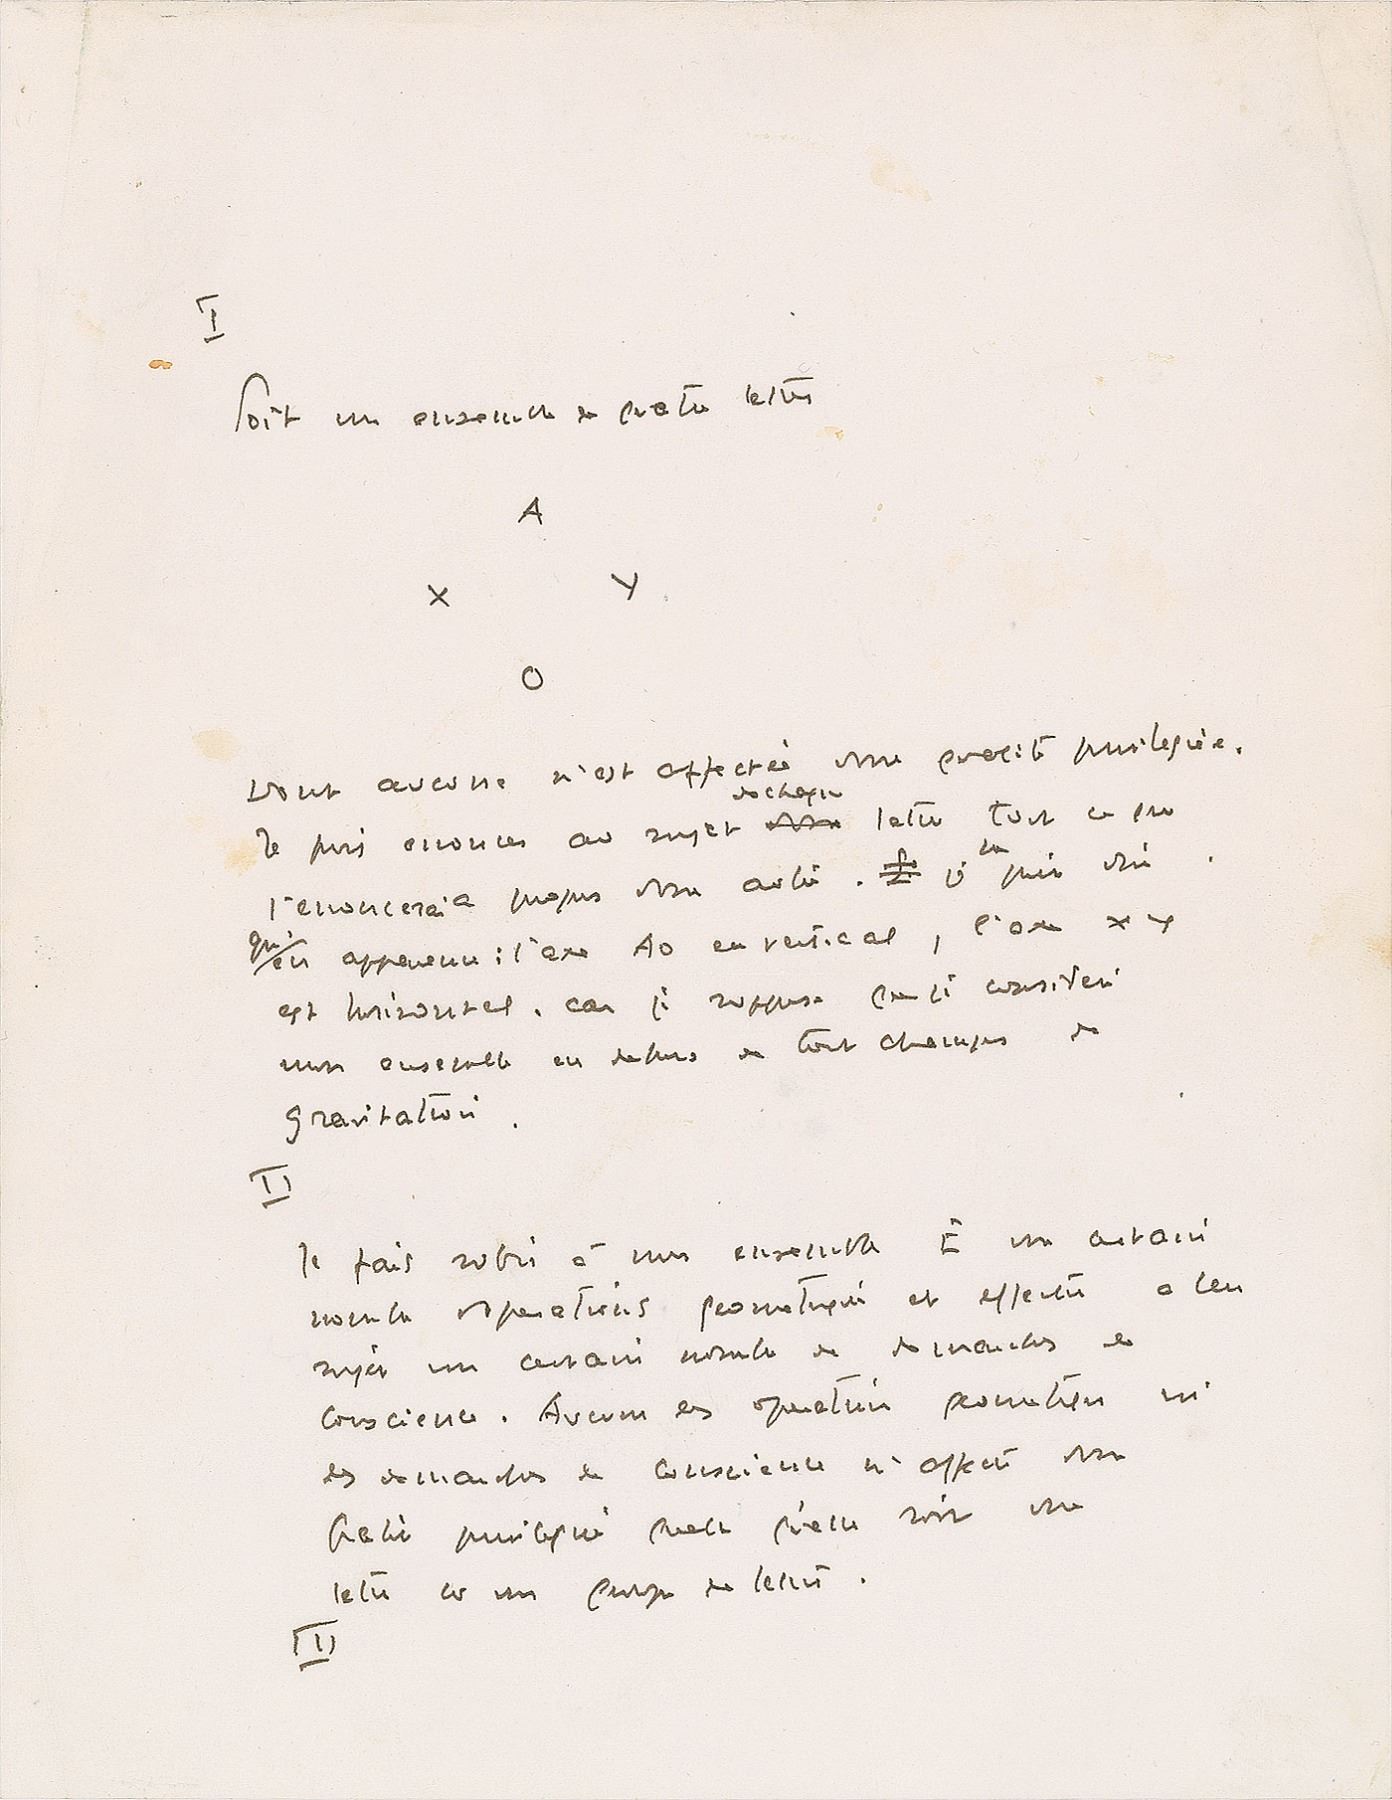 I
Soit un ensemble de quatre lettres
A
X Y
O
Dont aucune n'est affectée d'une qualité privilégiée.
de chaque
Je puis énoncer au sujet lettre tout ce que
j'énoncerai a propos d'une autre.
qu'en : l'axe AO est vertical, l'axe XY
est horizontal. car je suppose que je considère
mon ensemble en dehors de tout champs de
gravitation.
II
Je fais subir à mon ensemble E un certain
nombre d'opérations géométriques et effectue a leur
sujet un certain nombre de demandes de
conscience. Aucune des opérations géométriques ni
des demandes de conscience n'affecte d'une
qualité privilégiée quelle qu'elle soit une
lettre ou un groupe de lettres.
III